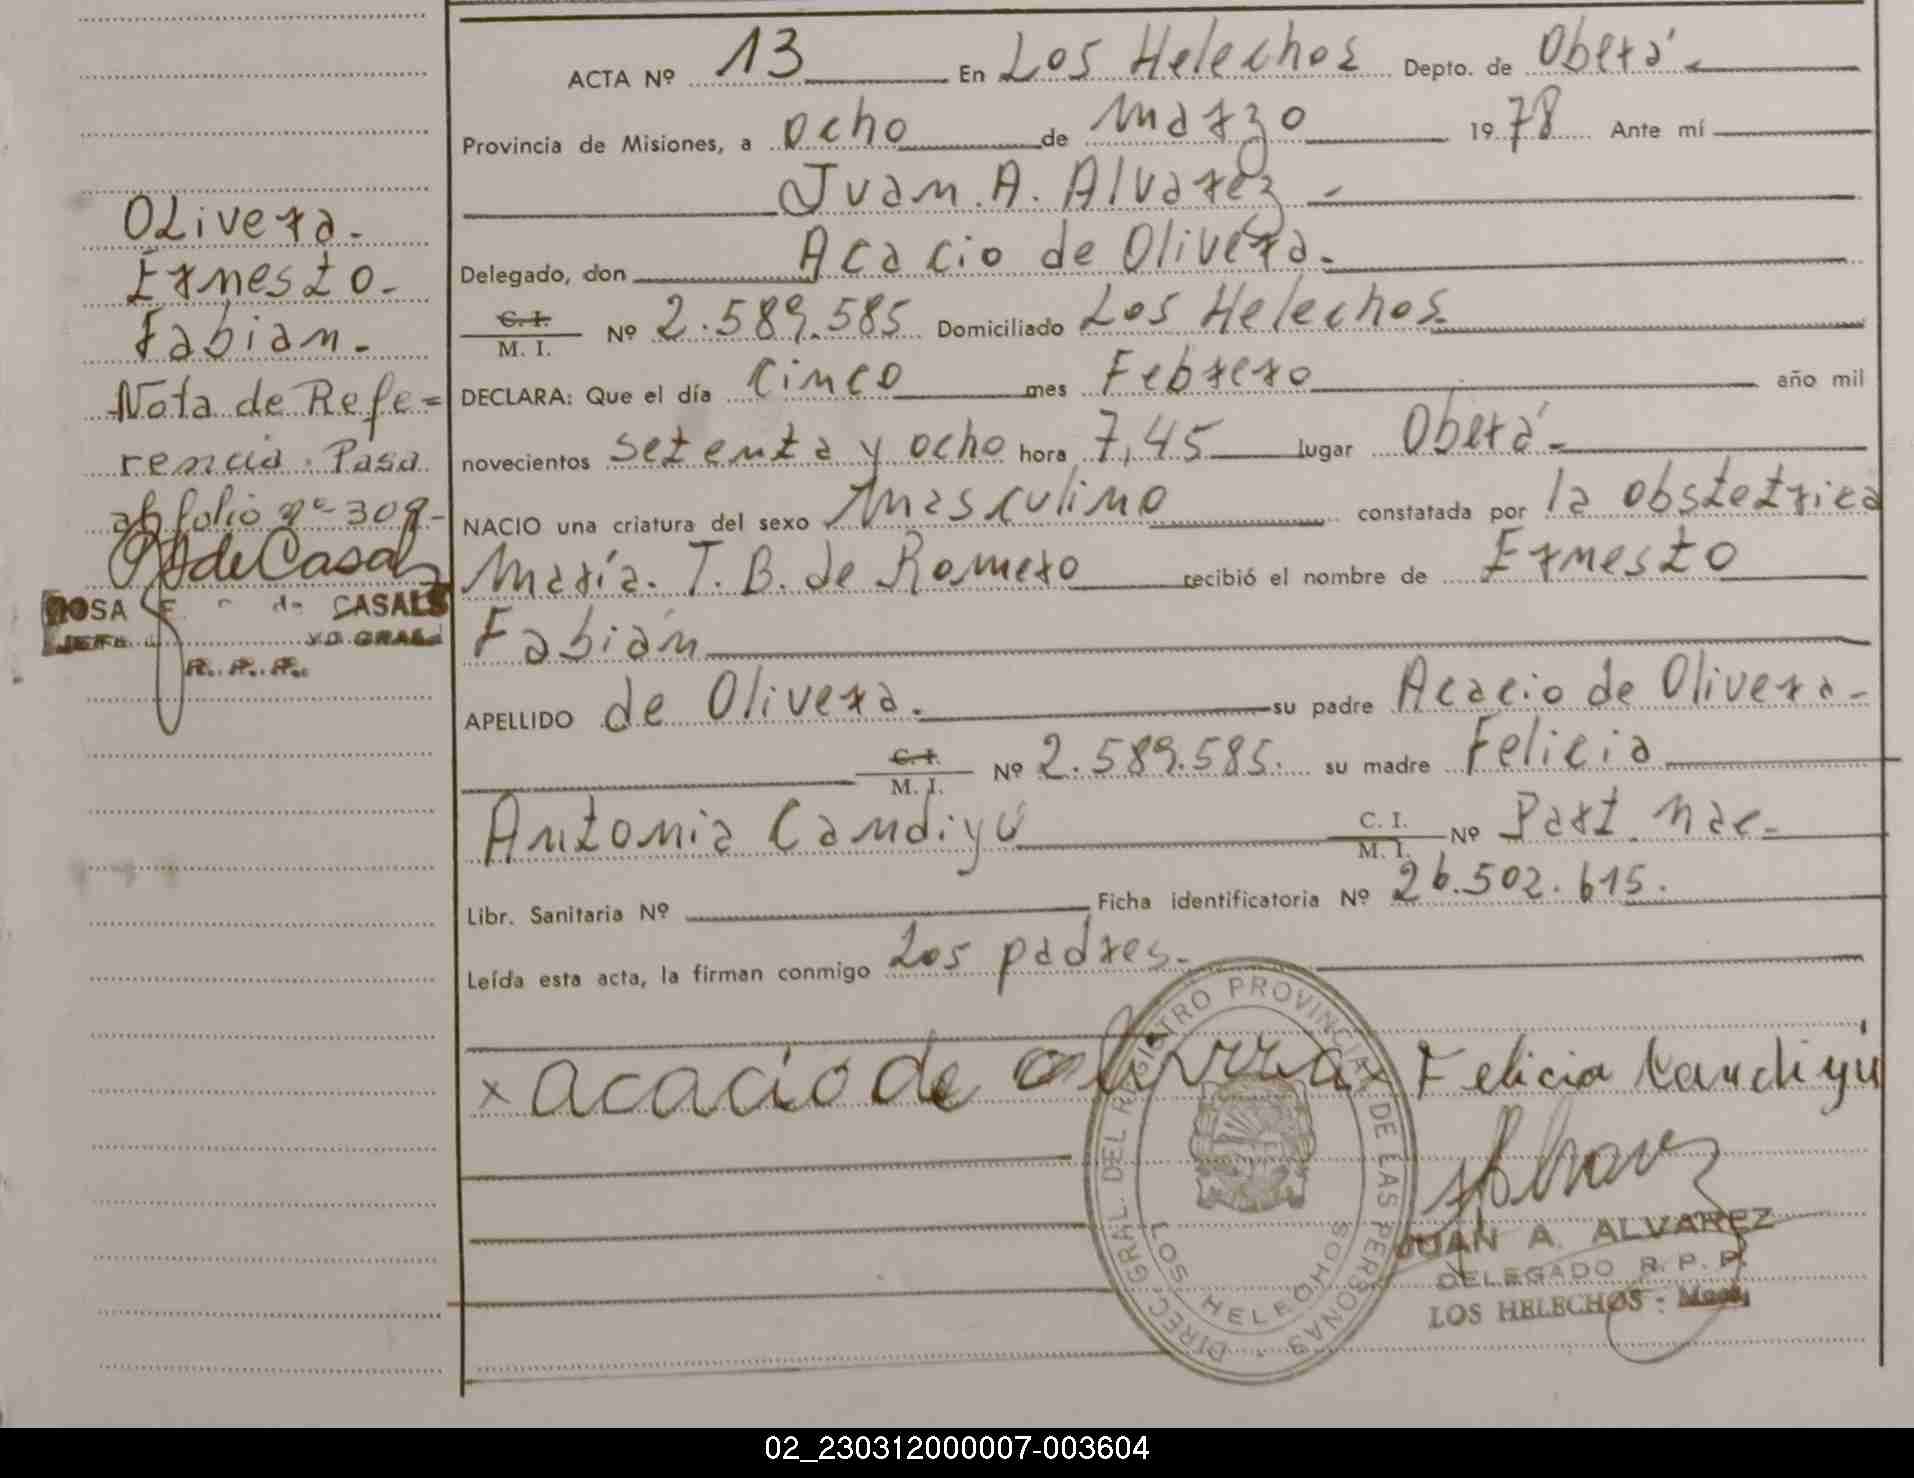 ACTA Nº 13 En Los Helechos Depto. de Oberá.
Provincia de Misiones, a ocho de Marzo 1978 Ante mí
Juan A. Alvarez
Delegado, don Acacio de Olivera.
C. I.
M. I. Nº 2.589.585 Domiciliado Los Helechos
DECLARA: Que el día Cinco mes Febrero año mil
novecientos setenta y ocho hora 7,45 lugar Oberá
NACIO una criatura del sexo Masculino constatada por la obstetrica
María. T. B. de Romero recibió el nombre de Ernesto
Fabián
APELLIDO de Olivera. su padre Acacio de Olivera
C. I.
M. I. Nº 2.589.585. su madre Felicia
Antonia Candiyú C. I.
M. I. Nº Part. nac.
Libr. Sanitaria Nº Ficha identificatoria Nº 26.502.615.
Leída esta acta, la firman conmigo Los padres.
x acacio de olivera x Felicia Candiyú
JUAN A. ALVAREZ
DELEGADO R. P. P.
LOS HELECHOS - Mnes.
DIREC. GRAL. DEL REGISTRO PROVINCIAL DE LAS PERSONAS
LOS HELECHOS
OLivera.
Ernesto.
Fabian.
Nota de Refe=
rencia. Pasa
al folio nº 309.
ROSA E. de CASALS
JEFE GRAL.
R. P. P.
02_230312000007-003604